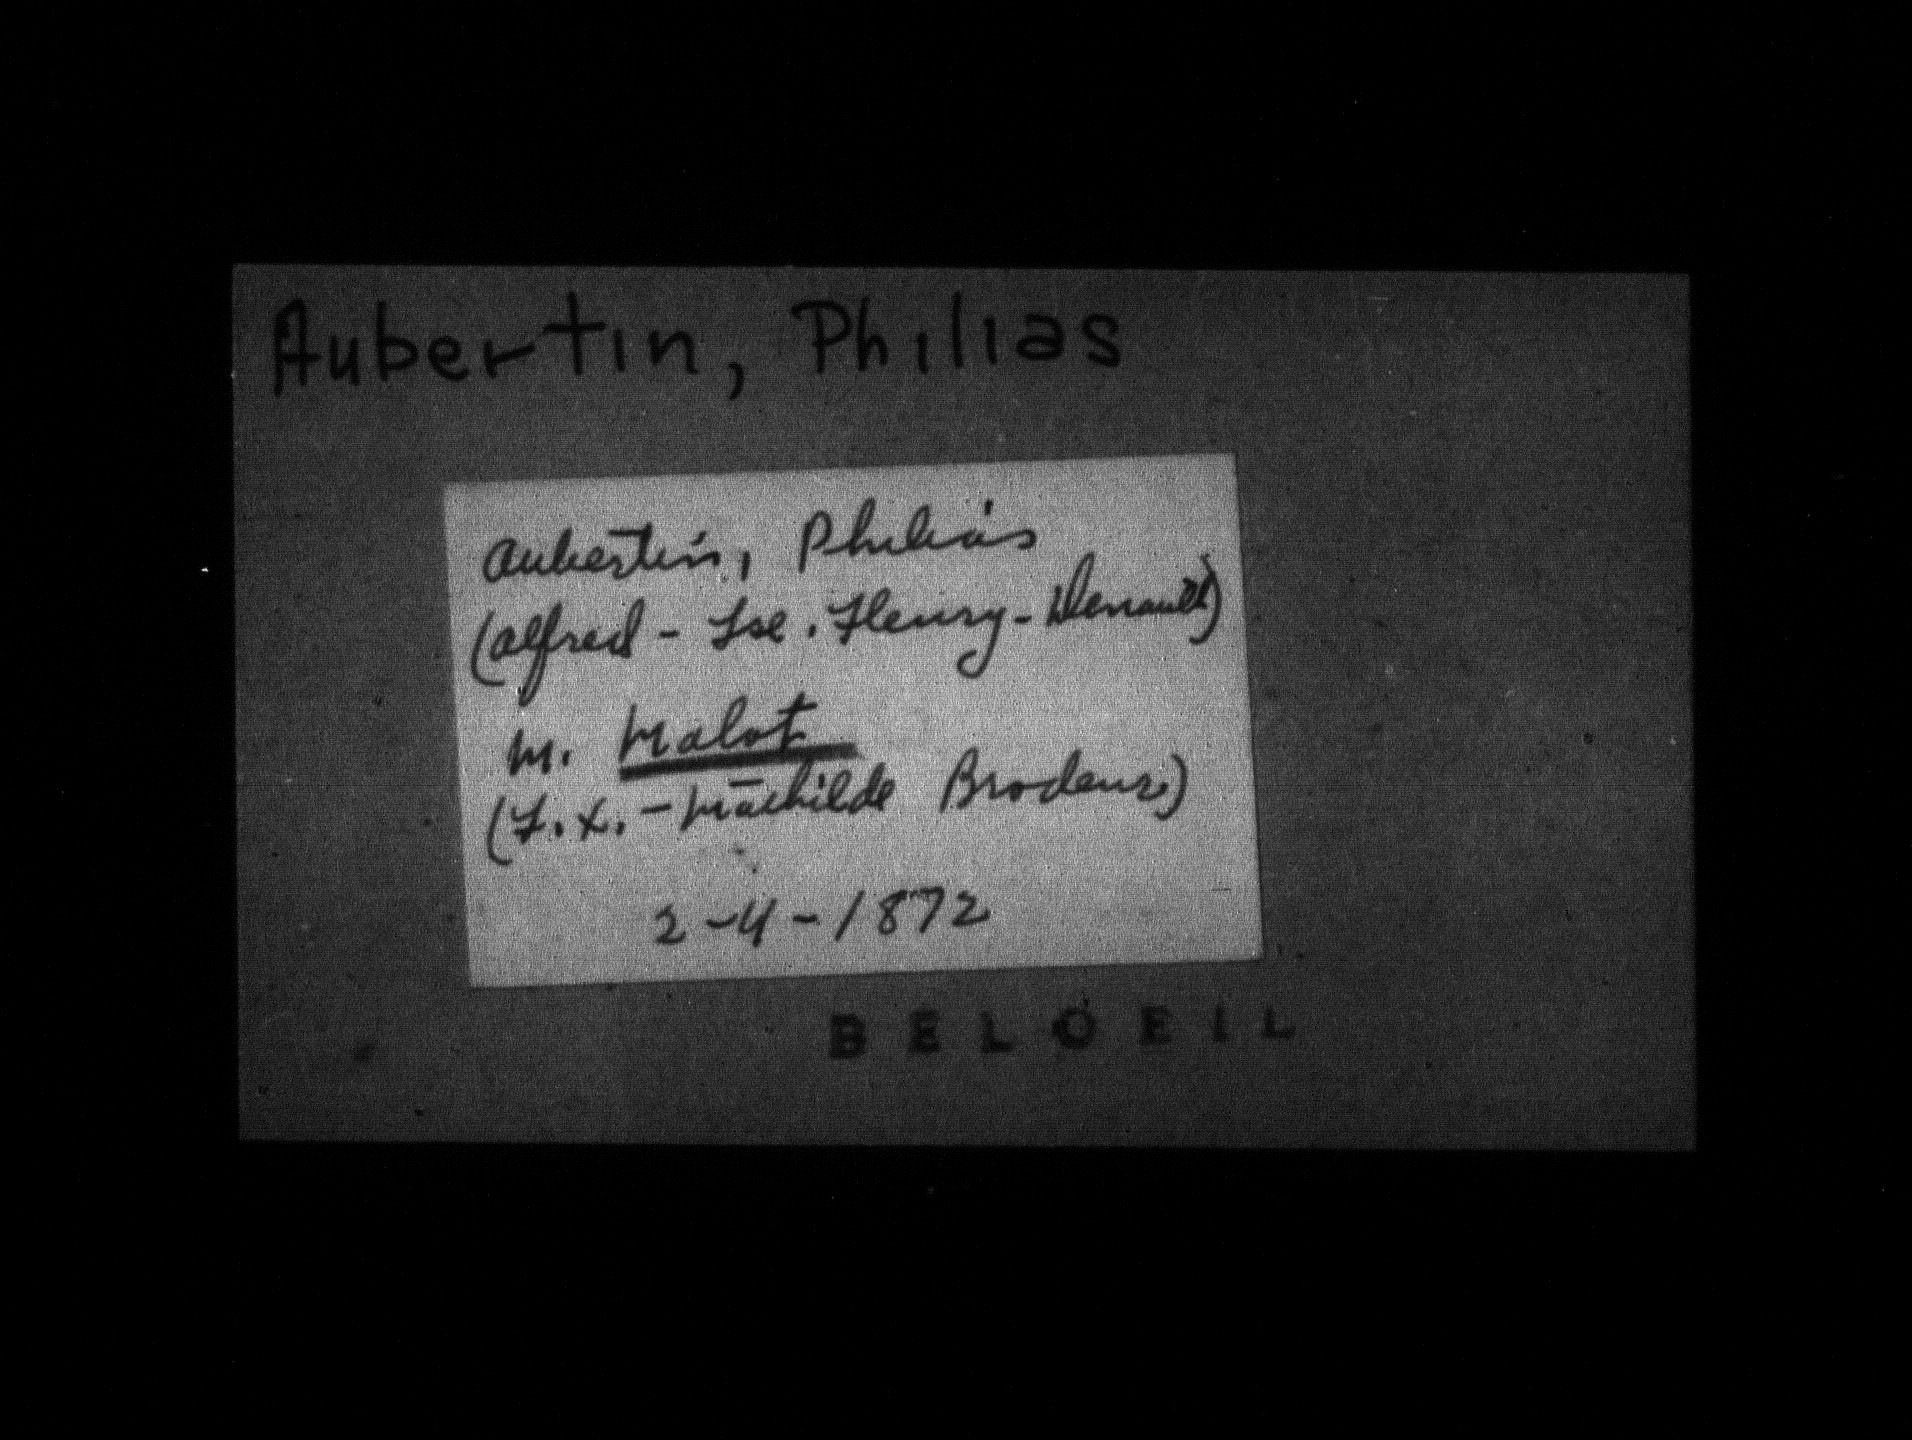 Aubertin, Philias
Aubertin, Philias
(Alfred - Fse. Fleury-Denault)
m. Malot
(F.X. - Mathilde Brodeur)
2-4-1872
BELOEIL